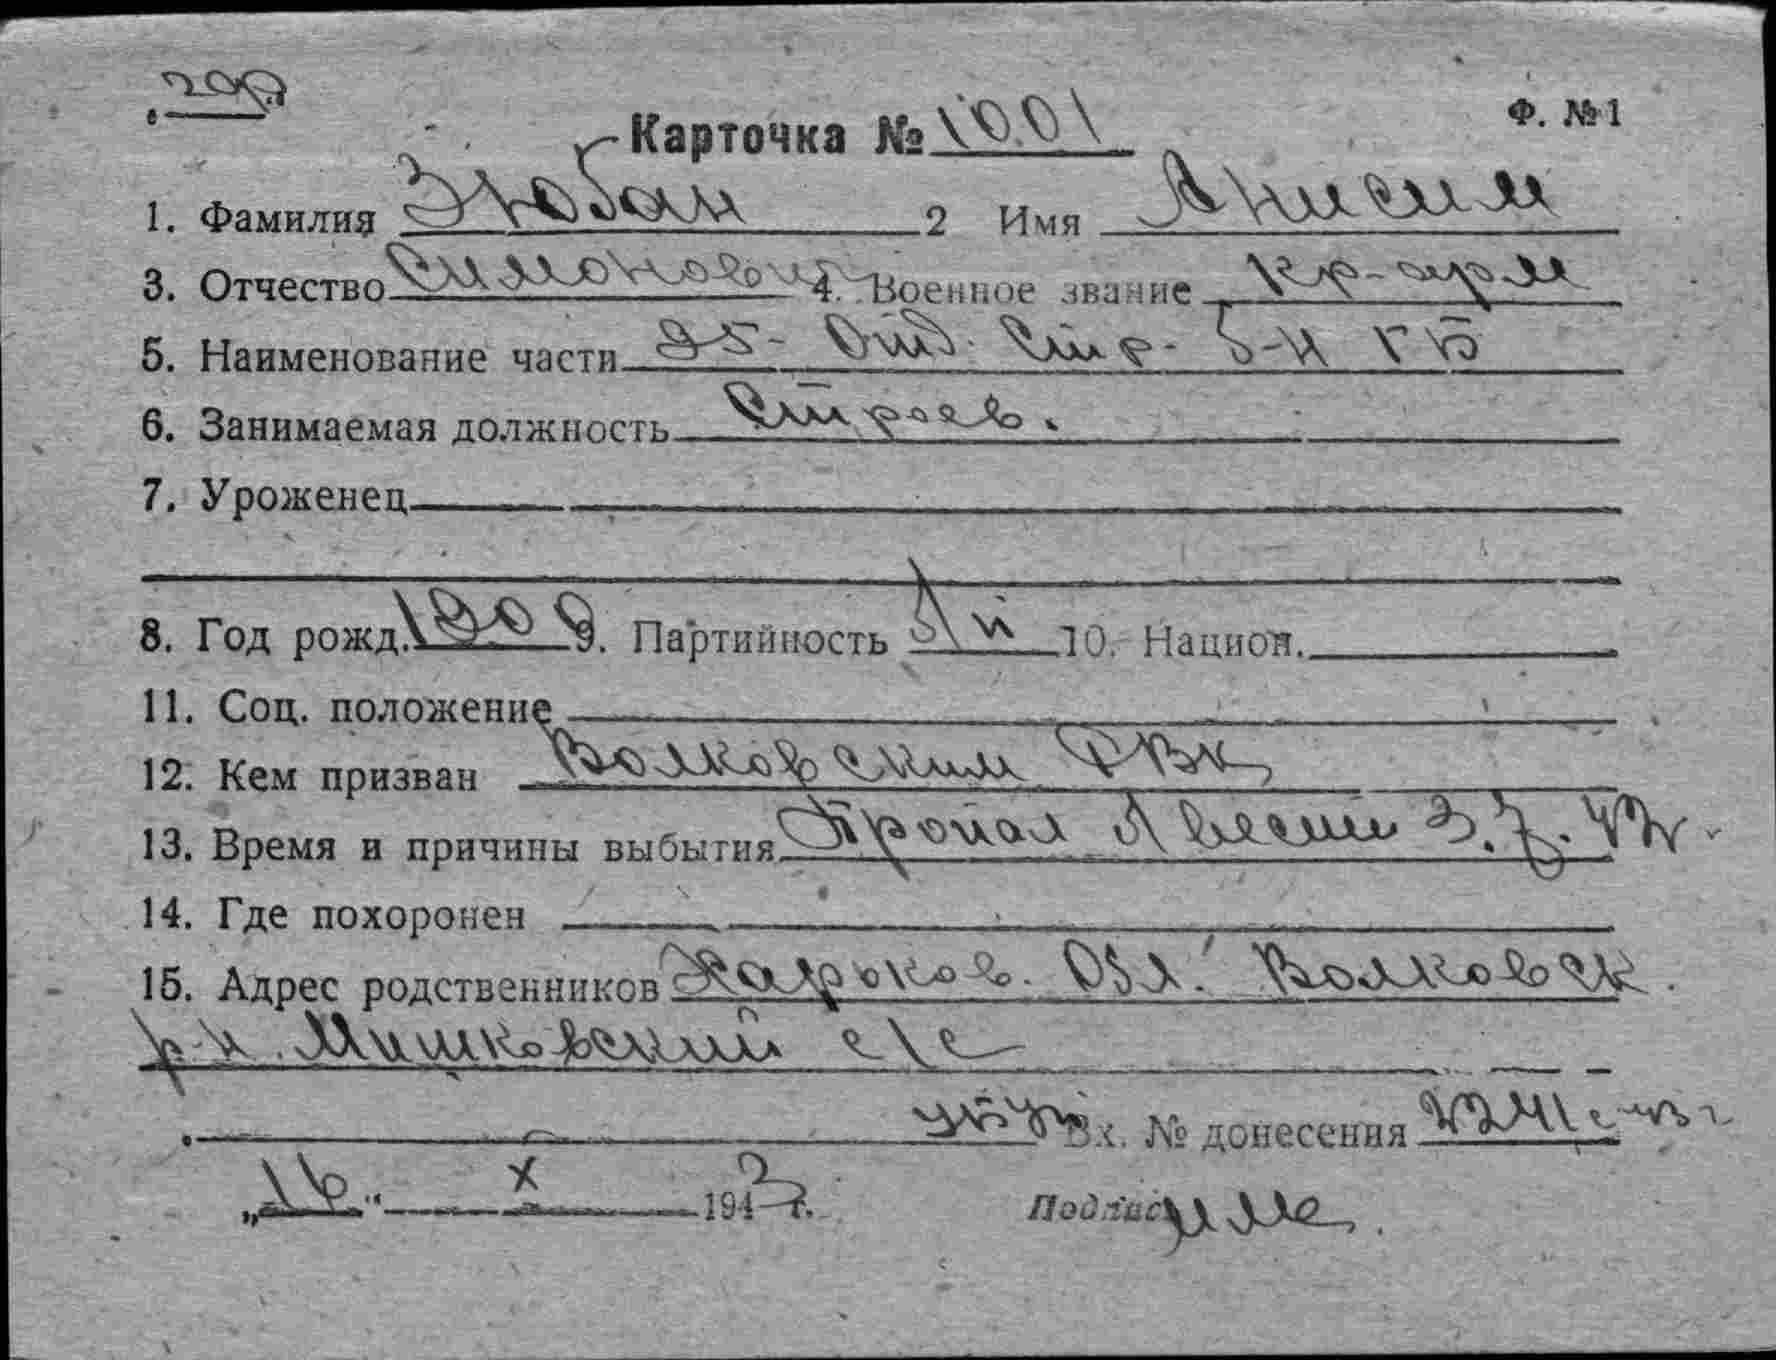 Ф. №1
Карточка № 1001
1. Фамилия Зюбан 2 Имя Анисим
3. Отчество Симонович 4. Военное звание кр-арм
5. Наименование части 95- Отд. Стр. б-н
6. Занимаемая должность Строев.
7. Уроженец
8. Год рожд. 1909 9. Партийность 10. Национ.
11. Соц. положение
12. Кем призван Волковским РВК
13. Время и причины выбытия Пропал без вести 3.7.42г.
14. Где похоронен
15. Адрес родственников Харьков. Обл. Волковск.
р-н. Мишковский с/с
Вх. № донесения
„16“ X 1943 г. Подпись